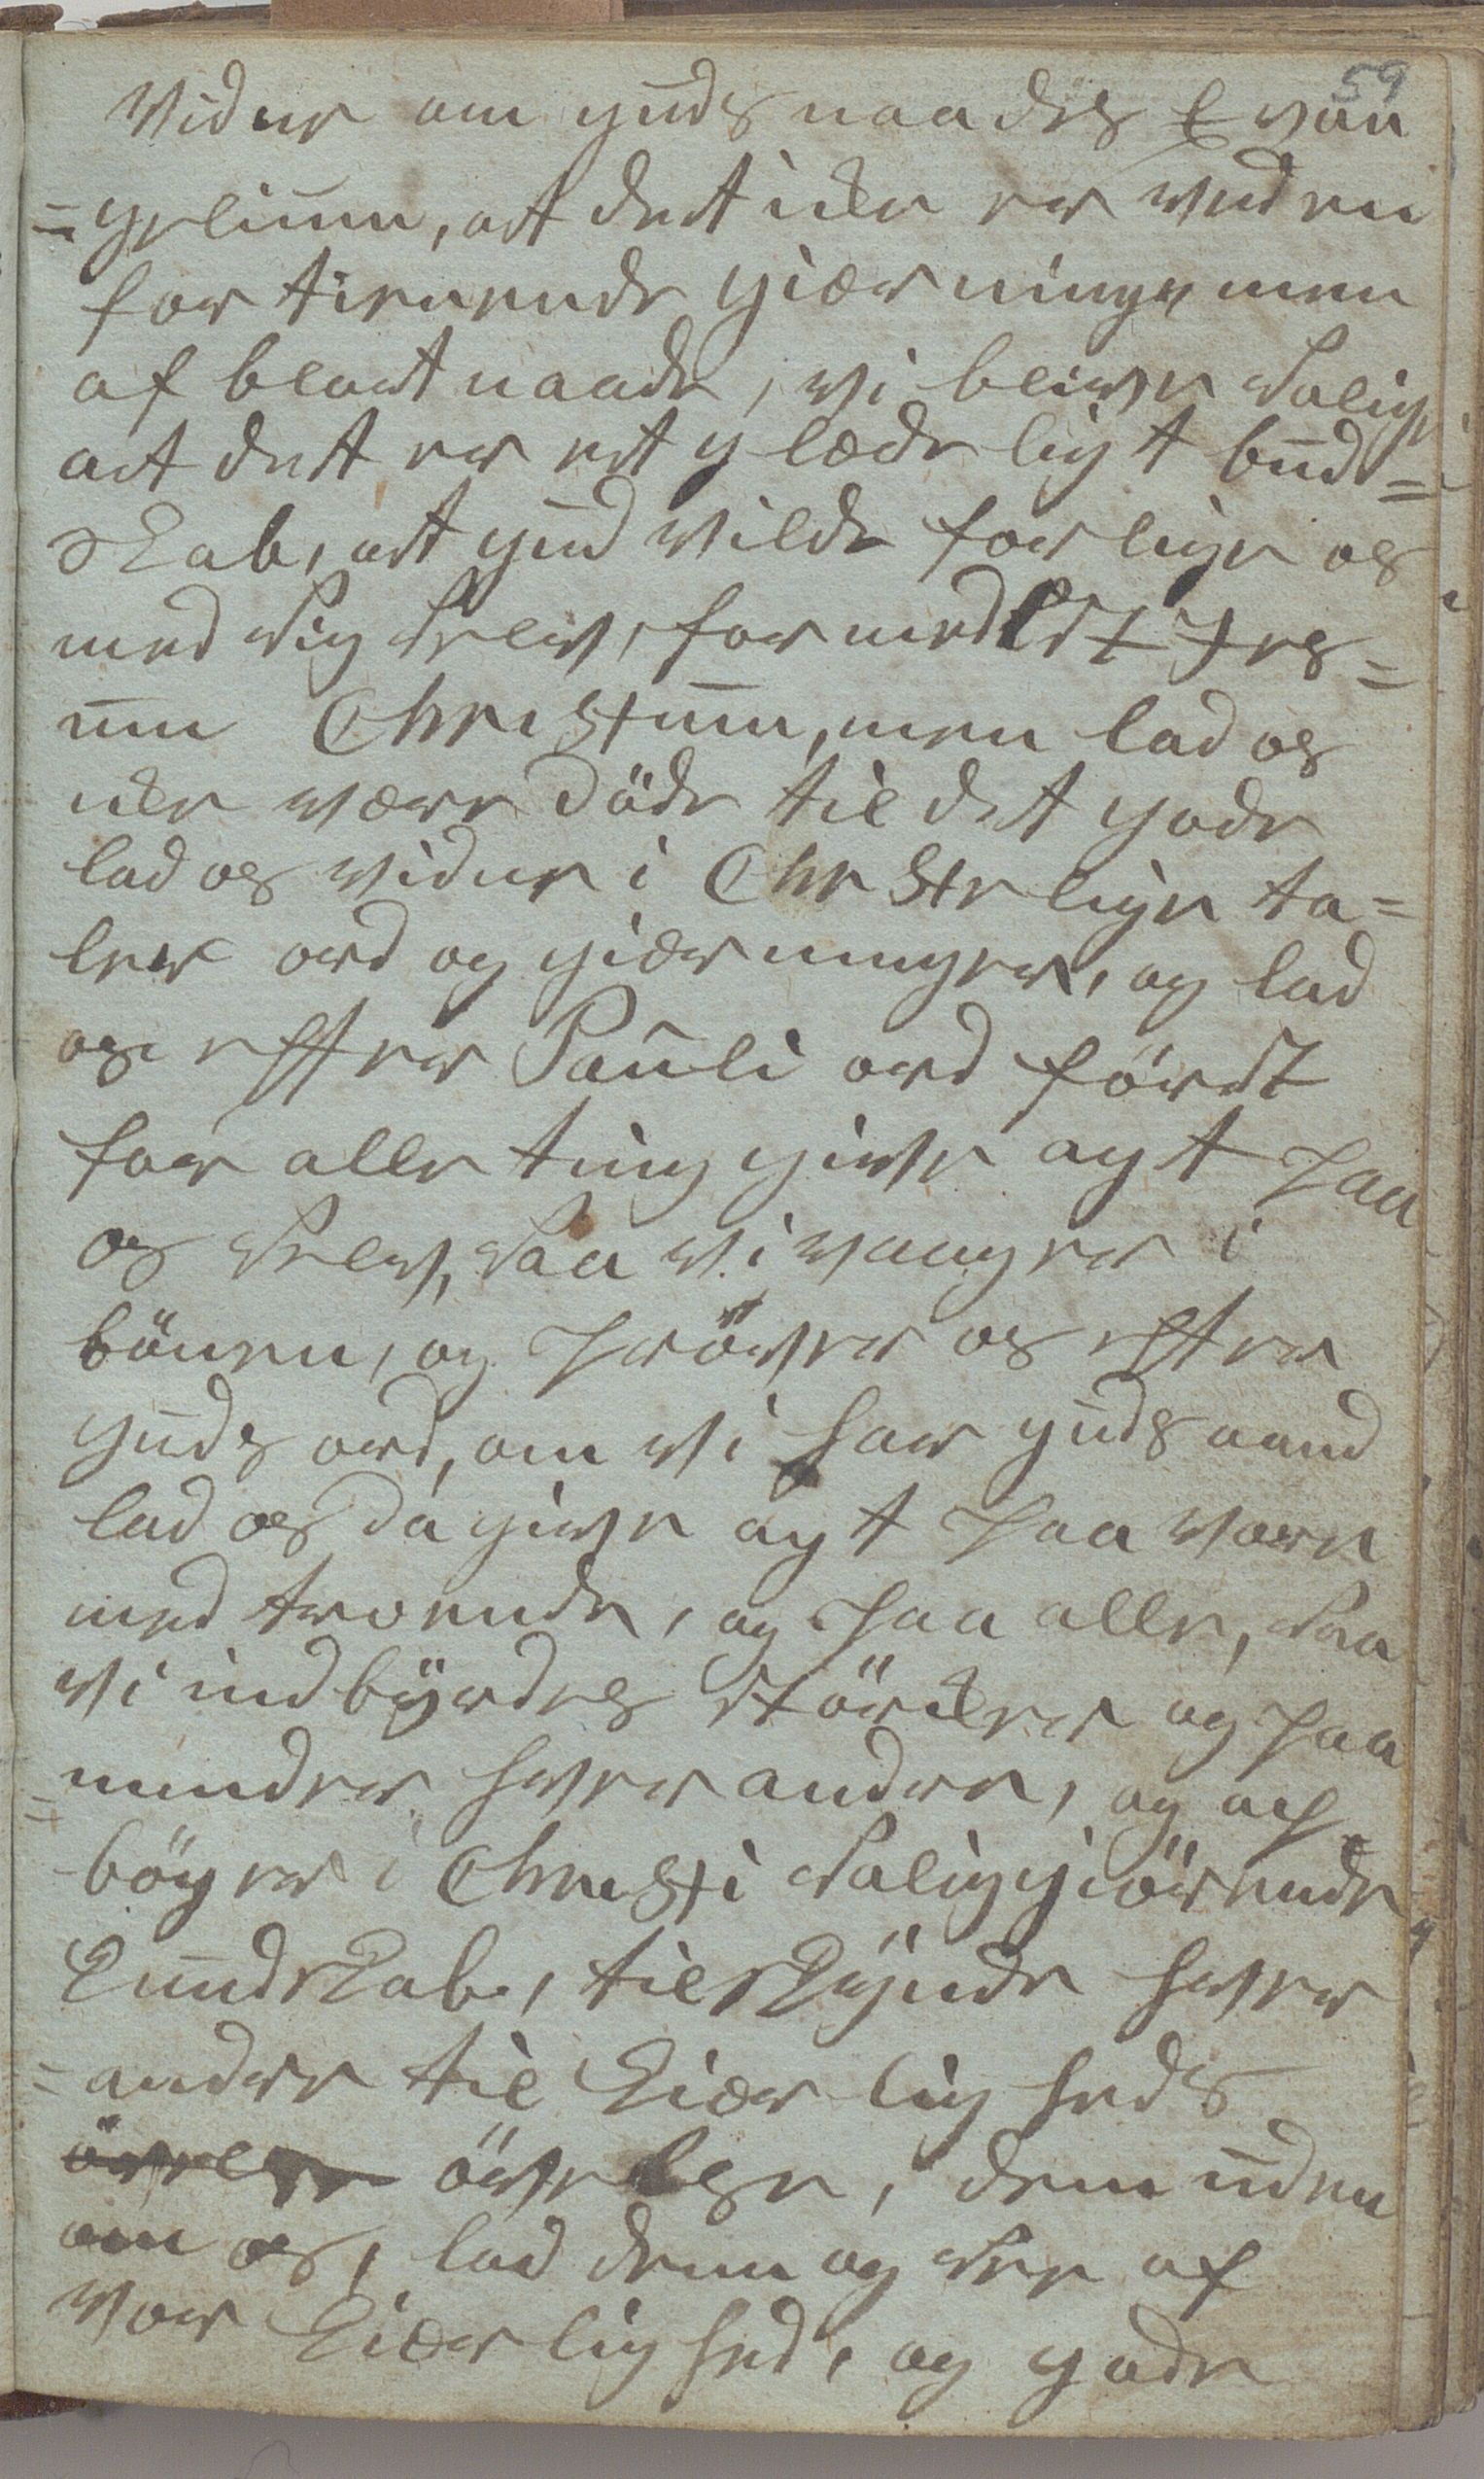 59
Vidne om guds naades Evan
=gelium, at det ikke er ved en
fortienende giærninge, men
af blodt naade, vi bliver salige
at det er et glædeligt bud=
skab, at gud vilde forlige os
med sig selv, formedelst Jes=
um Christum, men lad os
ikke være døde til det gode
lad os vidne i Christelige ta=
ler ord og giærninger, og lad
os effter Pauli ord först
for alle ting give agt paa
os selv, saa vi vaager i
bönen, og pröver os effter
guds ord, om vi har guds aand
lad os da give agt paa vore
med troende, og paa alle, saa
vi indbÿrdes störker og paa
=minder hver andre, og op
böger i Christi saliggiörende
kundskab, tilskÿnde hver
=andre til kiærligheds
övelse övelse, dem uden
om os, lad dem og see af
vor kiærlighed, og gode